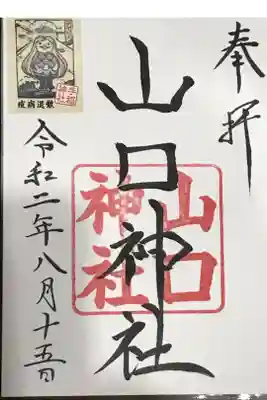 奉拝
山口神社
山口
神社
令和二年八月十五日
疫病退散